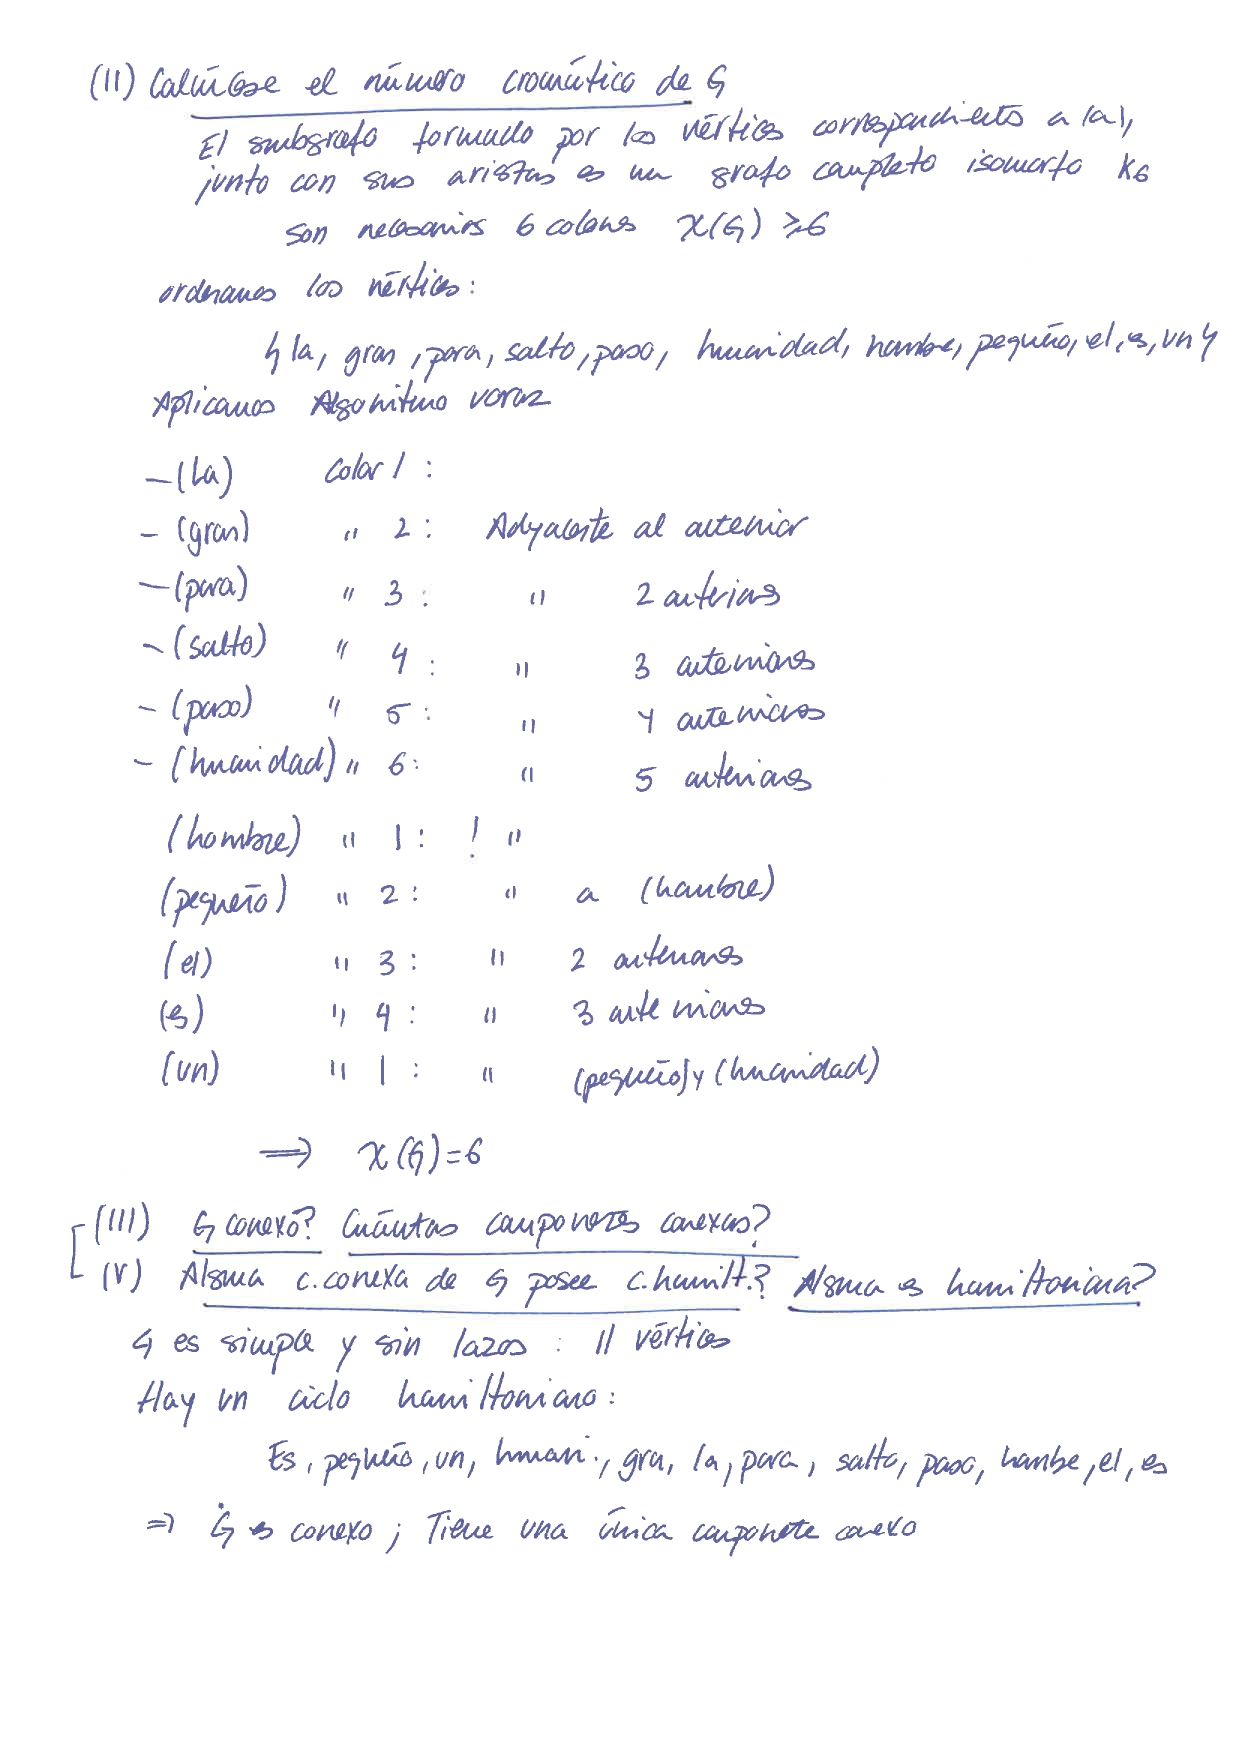 (II) Calcúlese el número cromático de G
El subgrafo formado por los vértices correspondientes a la),
junto con sus aristas es un grafo completo isomorfo K6
son necesarios 6 colores χ(G) ≥6
ordenamos los vértices:
{ la, gran, para, salto, paso, humanidad, hombre, pequeño, el, es, un }
Aplicamos Algoritmo voraz
- (La) Color 1 :
- (gran) " 2 : Adyacente al anterior
- (para) " 3 : " 2 anteriores
- (salto) " 4 : " 3 anteriores
- (paso) " 5 : " 4 anteriores
- (humanidad) " 6 : " 5 anteriores
(hombre) " 1 : ! "
(pequeño) " 2 : " a (hombre)
(el) " 3 : " 2 anteriores
(es) " 4 : " 3 anteriores
(un) " 1 : " (pequeño) y (humanidad)
⟹ χ(G)=6
(III) G conexo? Cuántas componentes conexas?
(V) Alguna c. conexa de G posee c. hamilt.? Alguna es hamiltoniana?
G es simple y sin lazos : 11 vértices
Hay un ciclo hamiltoniano :
Es, pequeño, un, human., gran, la, para, salto, paso, hombre, el, es
⇒ G es conexo ; Tiene una única componente conexo